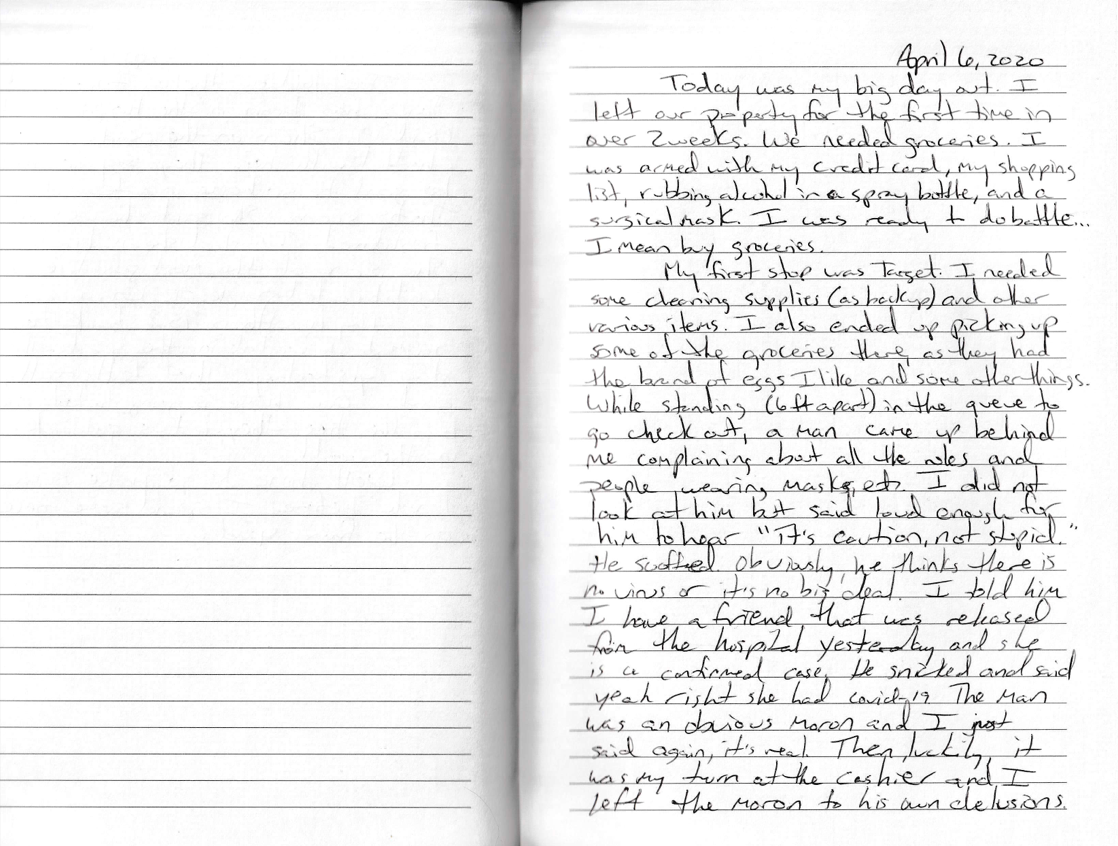 April 6, 2020
Today was my big day out. I
left our property for the first time in
over 2 weeks. We needed groceries. I
was armed with my credit card, my shopping
list, rubbing alcohol in a spray bottle, and a
surgical mask. I was ready to do battle...
I mean buy groceries.
My first stop was Target. I needed
some cleaning supplies (as backup) and other
various items. I also ended up picking up
some of the groceries there as they had
the brand of eggs I like and some other things.
While standing (6ft apart) in the queue to
go check out, a man came up behind
me complaining about all the rules and
people wearing masks, etc. I did not
look at him but said loud enough for
him to hear "it's caution, not stupid."
He scoffed. Obviously, he thinks there is
no virus or it's no big deal. I told him
I have a friend that was released
from the hospital yesterday and she
is a confirmed case. He snickered and said
yeah right she had covid-19. The man
was an obvious moron and I just
said again, it's real. Then luckily, it
was my turn at the cashier and I
left the moron to his own delusions.